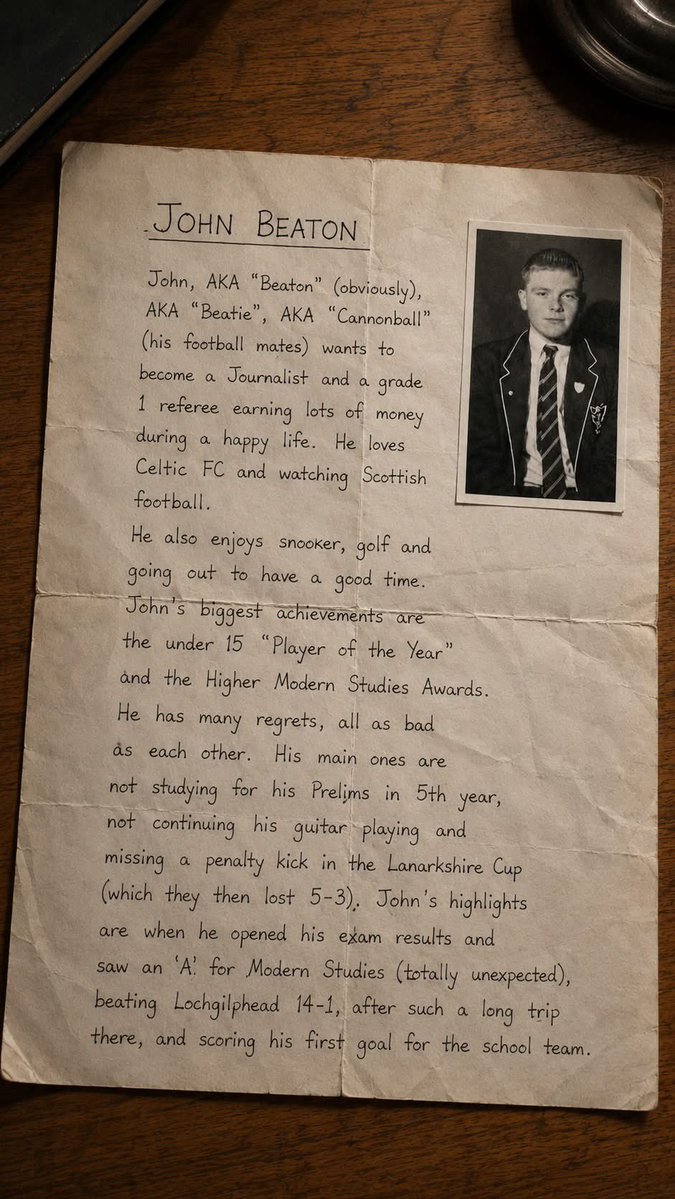 JOHN BEATON
John, AKA "Beaton" (obviously),
AKA "Beatie", AKA "Cannonball"
(his football mates) wants to
become a Journalist and a grade
1 referee earning lots of money
during a happy life. He loves
Celtic FC and watching Scottish
football.
He also enjoys snooker, golf and
going out to have a good time.
John's biggest achievements are
the under 15 "Player of the Year"
and the Higher Modern Studies Awards.
He has many regrets, all as bad
as each other. His main ones are
not studying for his Prelims in 5th year,
not continuing his guitar playing and
missing a penalty kick in the Lanarkshire Cup
(which they then lost 5-3). John's highlights
are when he opened his exam results and
saw an 'A' for Modern Studies (totally unexpected),
beating Lochgilphead 14-1, after such a long trip
there, and scoring his first goal for the school team.